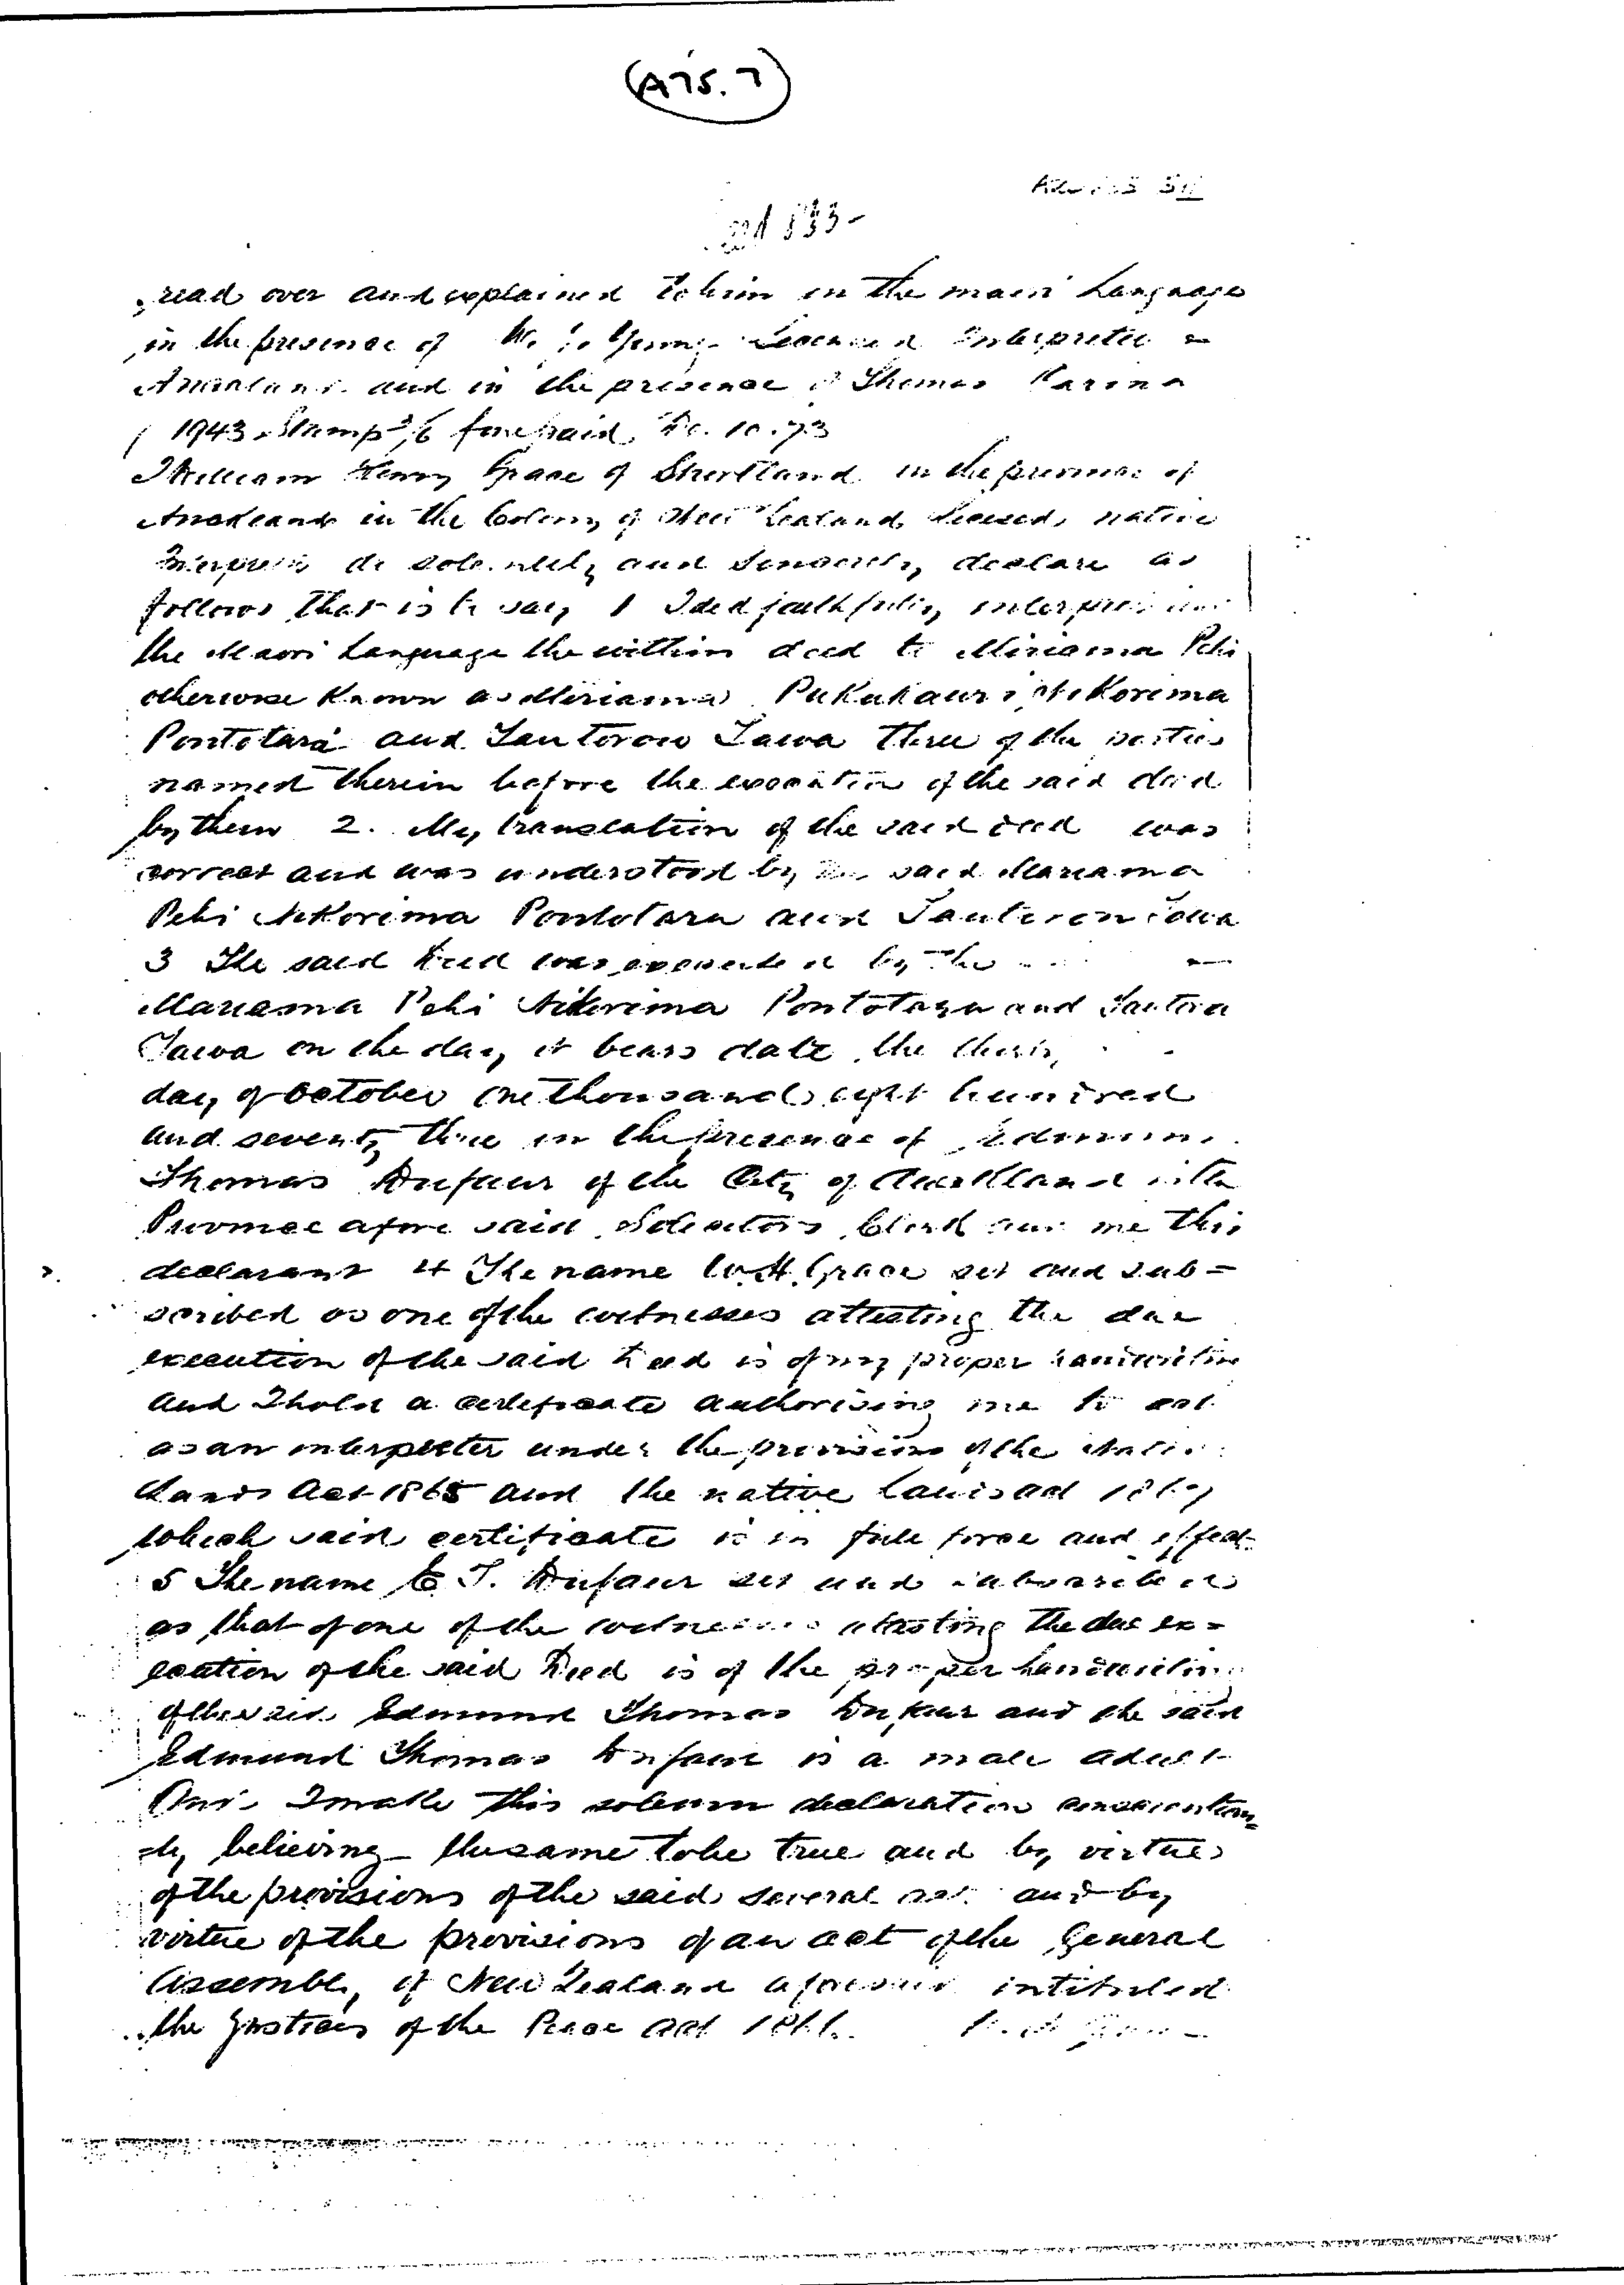 (A75.7)
833-
read over and explained to him in the maori Language
in the presence of Young Licensed Interpreter
Auckland and in the presence of Thomas Karina
1943 Stamp 2/6 fine paid 10.73
I William Henry Grace of Shortland in the province of
Auckland in the Colony of New Zealand Licensed native
Interpreter do solemnly and sincerely declare as
follows that is to say 1 I did faithfully interpret into
the Maori Language the within deed to Miriama Pehi
otherwise known as Miriama Pukukauri Nikorima
Poutotara and Tautoron Tawa three of the parties
named therein before the execution of the said deed
by them 2. My translation of the said deed was
correct and was understood by the said Mariama
Pehi Nikorima Poutotara and Tautoron Tawa
3 The said Deed was executed by the
Mariama Pehi Nikorima Poutotara and Tautoro
Tawa on the day it bears date the
day of October one thousand eight hundred
and seventy three in the presence of Edmund
Thomas Dufaur of the City of Auckland in the
Province afore said Solicitors Clerk and me this
declarant 4 The name W. H. Grace set and sub=
scribed as one of the witnesses attesting the due
execution of the said Deed is of my proper handwriting
and I hold a certificate authorising me to act
as an interpreter under the provisions of the Native
Lands Act 1865 and the native Lands act 1867
which said certificate is in full force and effect
5 The name E T. Dufaur set and subscribed
as that of one of the witnesses attesting the due ex=
ecution of the said Deed is of the proper handwriting
of the said Edmund Thomas Dufaur and the said
Edmund Thomas Dufaur is a male adult
And I make this solemn declaration conscientious
=ly believing the same to be true and by virtue
of the provisions of the said several act and by
virtue of the provisions of an act of the General
Assembly of New Zealand aforesaid intituled
the Justices of the Peace act 1866.